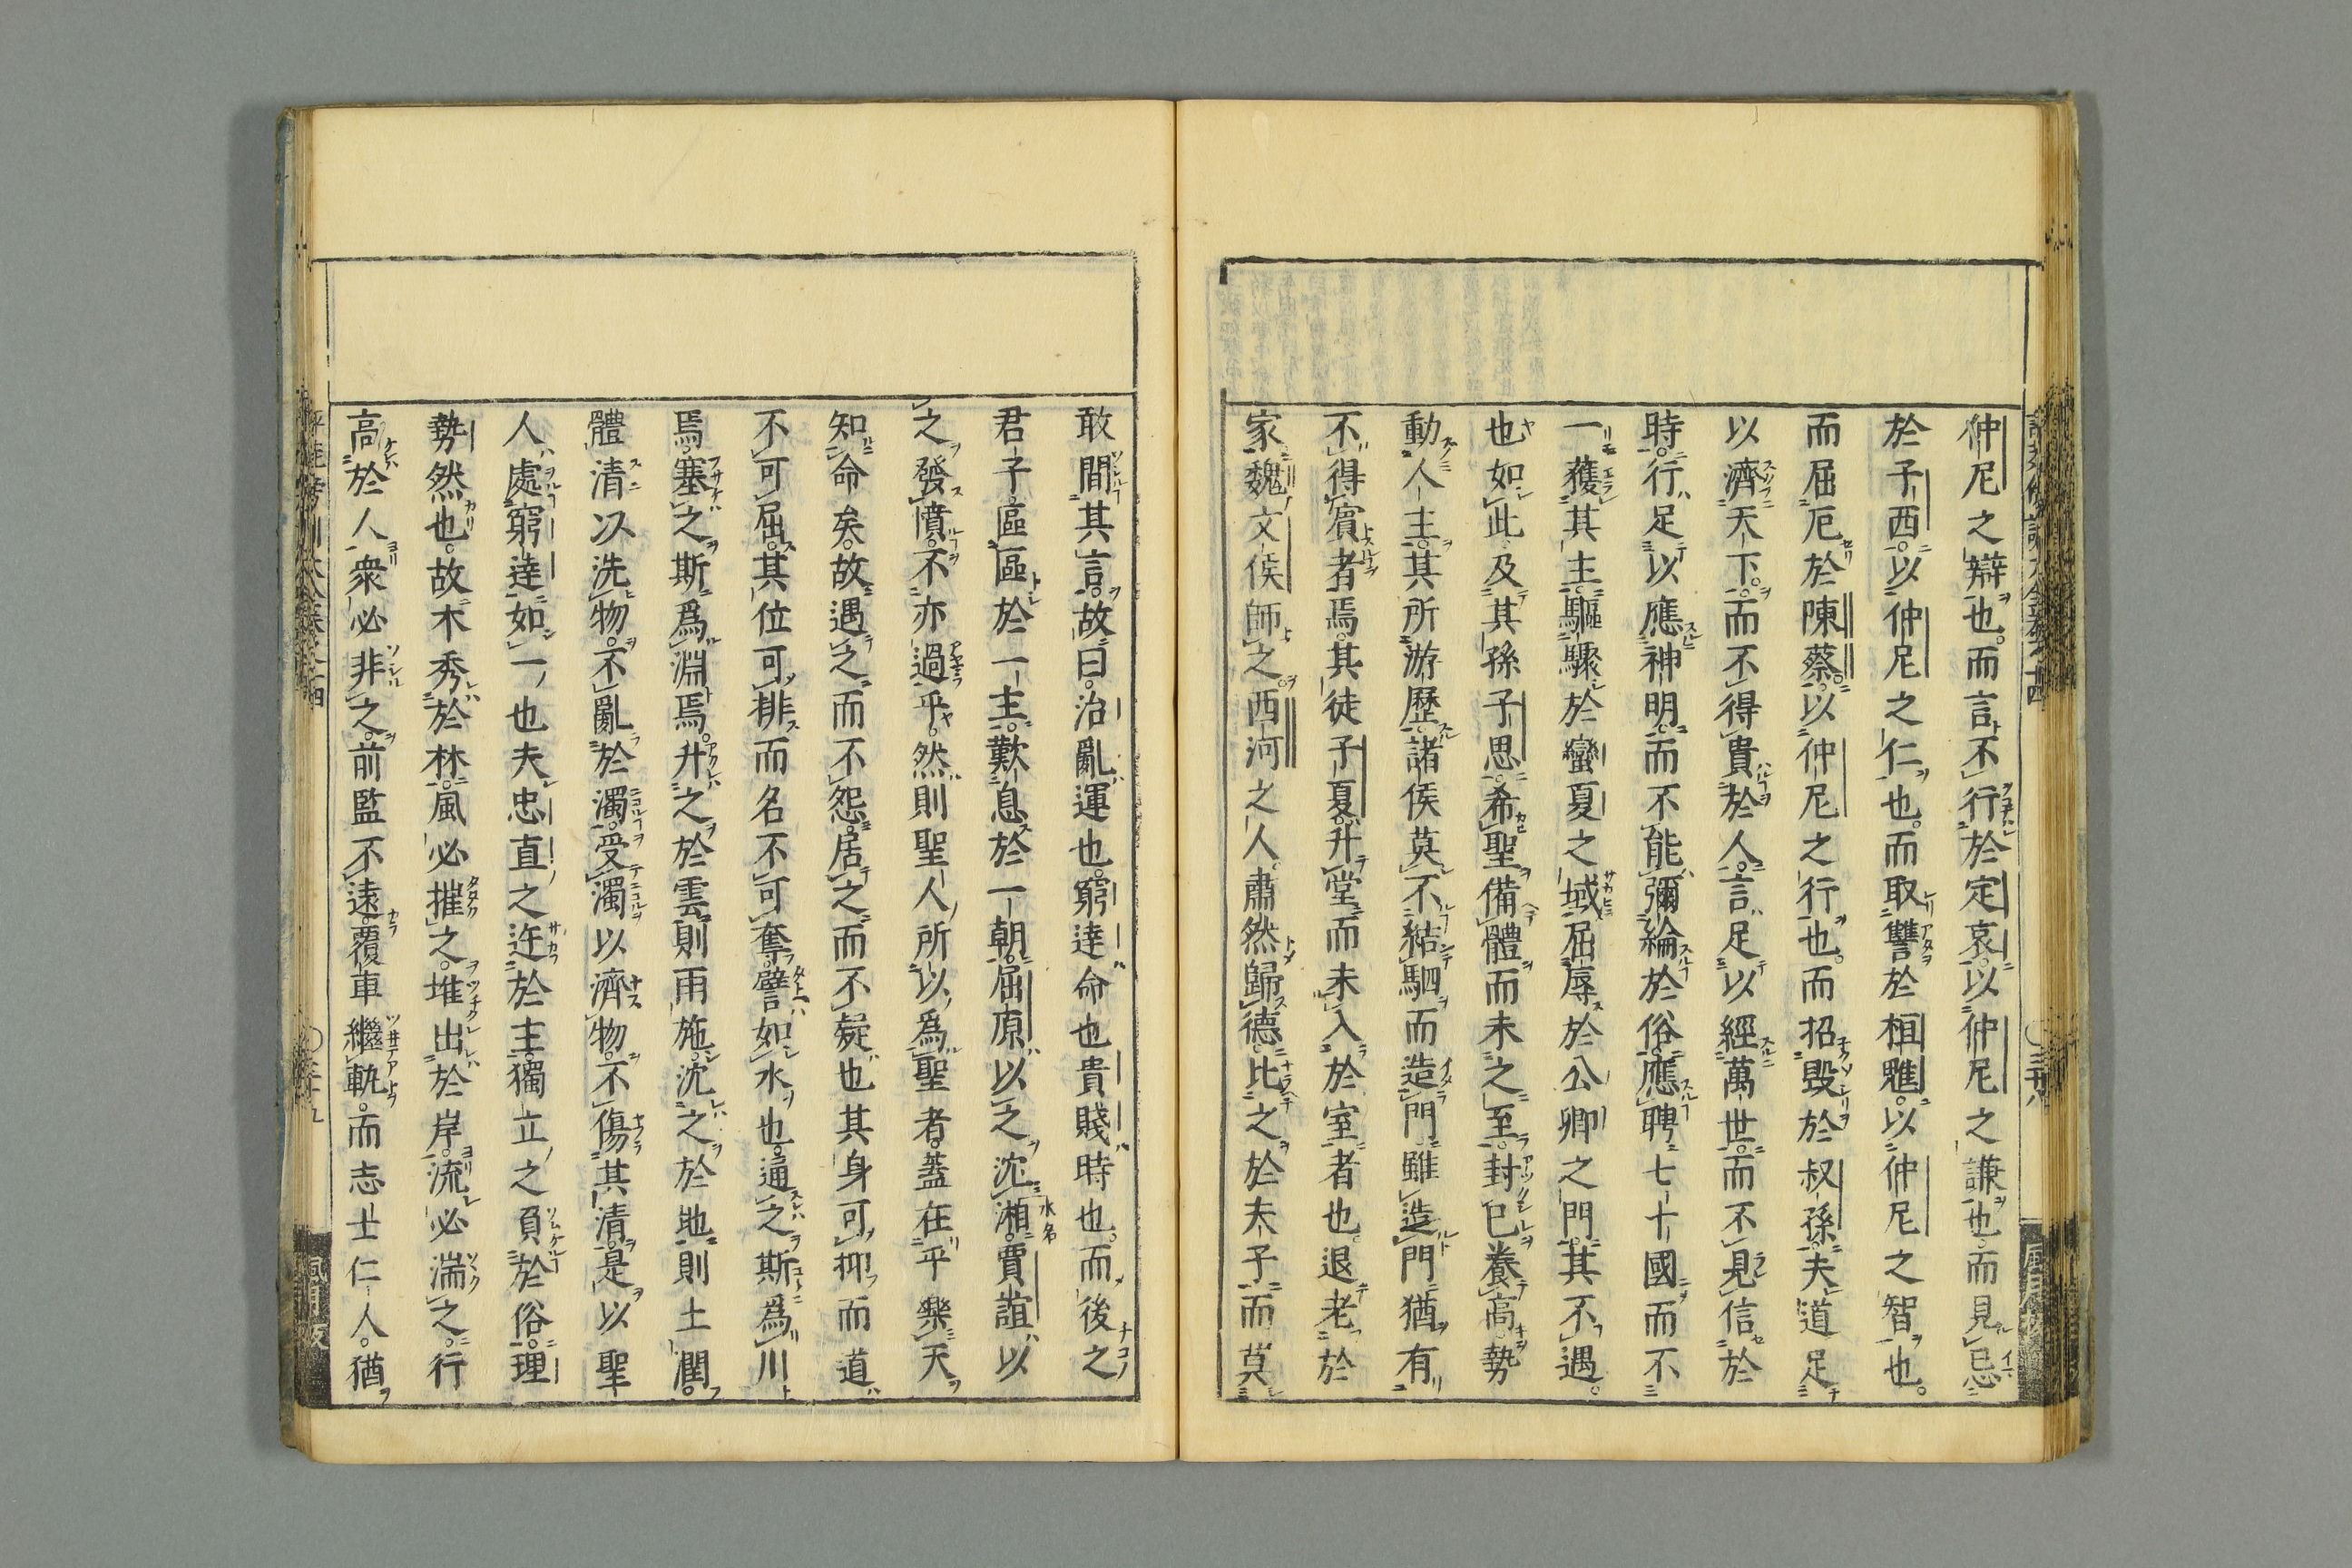 仲尼之辯也。而言不行於定哀。以仲尼之謙也。而見忌
於子西。以仲尼之仁也。而取讐於桓魋。以仲尼之智也。
而屈厄於陳蔡。以仲尼之行也。而招毀於叔孫。夫道足
以濟天下。而不得貴於人。言足以經萬世。而不見信於
時。行足以應神明。而不能彌綸於俗。應聘七十國。而不
一獲其主。驅驟於蠻夏之域。屈辱於公卿之門。其不遇
也如此。及其孫子思。希聖備體而未之至。封已養高勢
動人主。其所游歷諸侯。莫不結駟而造門。雖造門猶有
不得賓者焉。其徒子夏。升堂而未入於室者也。退老於
家。魏文侯師之。西河之人。肅然歸德。比之於夫子。而莫
敢間其言。故曰。治亂運也。窮達命也。貴賤時也。而後之
君子。區區於一主。歎息於一朝。屈原以之沈湘。賈誼以
水名
之發憤。不亦過乎。然則聖人所以爲聖者。蓋在乎樂天
知命矣。故遇之而不怨。居之而不疑也。其身可抑而道
不可屈。其位可排而名不可奪。譬如水也。通之斯爲川
焉。塞之斯爲淵焉。升之於雲則雨施。沈之於地則土潤。
體清以洗物。不亂於濁。受濁以濟物。不傷其清。是以聖
人處窮達如一也。夫忠直之迕於主。獨立之負於俗。理
勢然也。故木秀於林。風必摧之。堆出於岸。流必湍之。行
高於人衆必非之。前監不遠。覆車繼軌。而志士仁人。猶